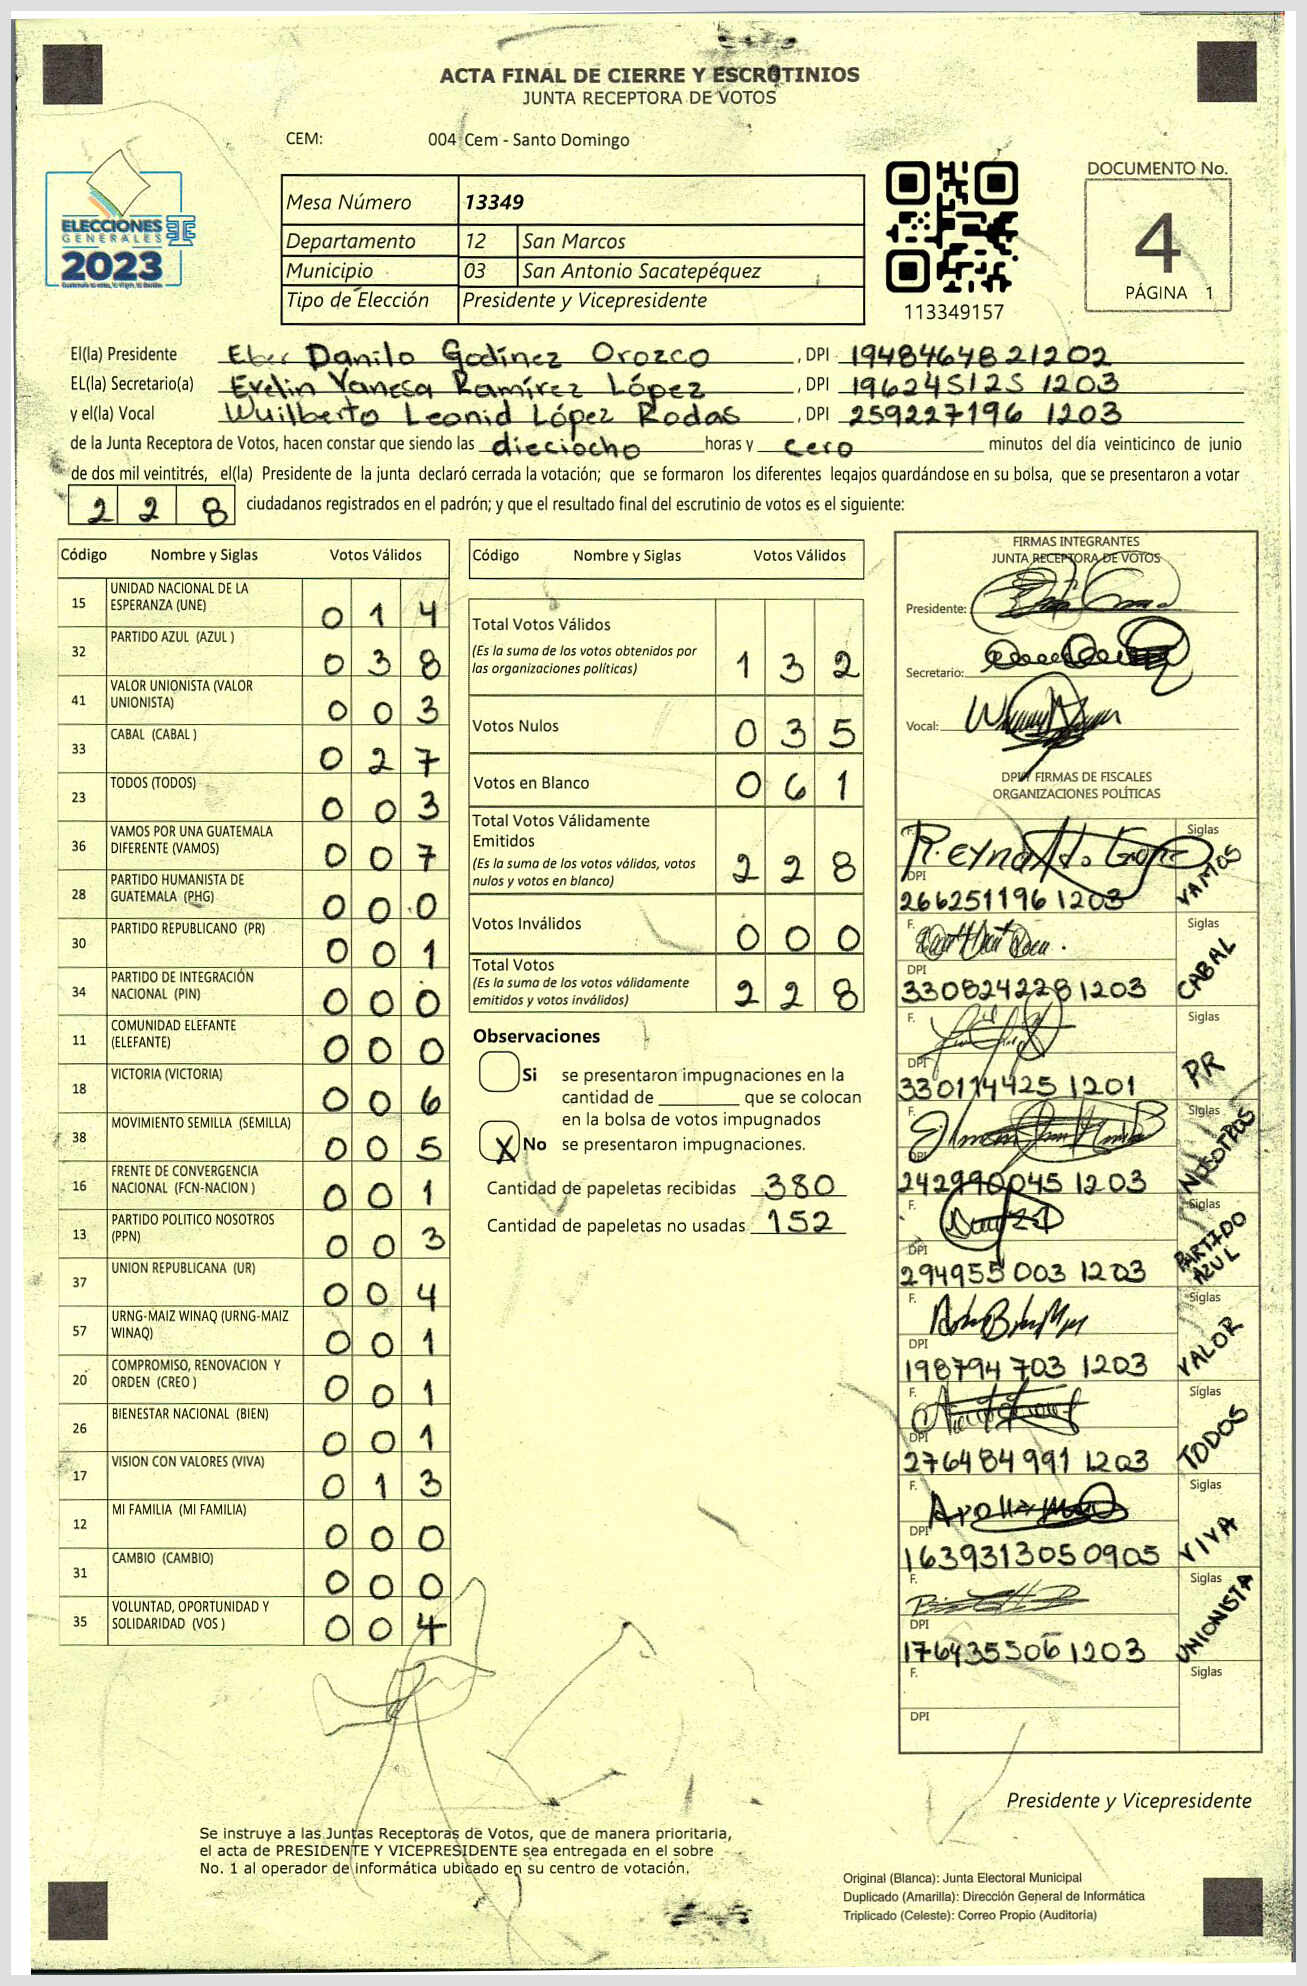 ACTA FINAL DE CIERRE Y ESCRUTINIOS
JUNTA RECEPTORA DE VOTOS
CEM: 004 Cem - Santo Domingo
ELECCIONES
GENERALES
2023
Mesa Número 13349
Departamento 12 San Marcos
Municipio 03 San Antonio Sacatepéquez
Tipo de Elección Presidente y Vicepresidente
113349157
DOCUMENTO No.
4
PÁGINA 1
El(la) Presidente Eber Danilo Godínez Orozco, DPI 1948464821202
EL(la) Secretario(a) Evelin Yanesa Ramírez López, DPI 196245125 1203
y el(la) Vocal Wuilberto Leonid López Rodas, DPI 259227196 1203
de la Junta Receptora de Votos, hacen constar que siendo las dieciocho horas y cero minutos del día veinticinco de junio
de dos mil veintitrés, el(la) Presidente de la junta declaró cerrada la votación; que se formaron los diferentes legajos guardándose en su bolsa, que se presentaron a votar
2 2 8 ciudadanos registrados en el padrón; y que el resultado final del escrutinio de votos es el siguiente:
Código Nombre y Siglas Votos Válidos
15 UNIDAD NACIONAL DE LA ESPERANZA (UNE) 0 1 4
32 PARTIDO AZUL (AZUL ) 0 3 8
41 VALOR UNIONISTA (VALOR UNIONISTA) 0 0 3
33 CABAL (CABAL ) 0 2 7
23 TODOS (TODOS) 0 0 3
36 VAMOS POR UNA GUATEMALA DIFERENTE (VAMOS) 0 0 7
28 PARTIDO HUMANISTA DE GUATEMALA (PHG) 0 0 0
30 PARTIDO REPUBLICANO (PR) 0 0 1
34 PARTIDO DE INTEGRACIÓN NACIONAL (PIN) 0 0 0
11 COMUNIDAD ELEFANTE (ELEFANTE) 0 0 0
18 VICTORIA (VICTORIA) 0 0 6
38 MOVIMIENTO SEMILLA (SEMILLA) 0 0 5
16 FRENTE DE CONVERGENCIA NACIONAL (FCN-NACION ) 0 0 1
13 PARTIDO POLITICO NOSOTROS (PPN) 0 0 3
37 UNION REPUBLICANA (UR) 0 0 4
57 URNG-MAIZ WINAQ (URNG-MAIZ WINAQ) 0 0 1
20 COMPROMISO, RENOVACION Y ORDEN (CREO ) 0 0 1
26 BIENESTAR NACIONAL (BIEN) 0 0 1
17 VISION CON VALORES (VIVA) 0 1 3
12 MI FAMILIA (MI FAMILIA) 0 0 0
31 CAMBIO (CAMBIO) 0 0 0
35 VOLUNTAD, OPORTUNIDAD Y SOLIDARIDAD (VOS ) 0 0 4
Código Nombre y Siglas Votos Válidos
Total Votos Válidos 1 3 2
(Es la suma de los votos obtenidos por
las organizaciones políticas)
Votos Nulos 0 3 5
Votos en Blanco 0 6 1
Total Votos Válidamente
Emitidos 2 2 8
(Es la suma de los votos válidos, votos
nulos y votos en blanco)
Votos Inválidos 0 0 0
Total Votos 2 2 8
(Es la suma de los votos válidamente
emitidos y votos inválidos)
Observaciones
Si se presentaron impugnaciones en la
cantidad de ________ que se colocan
en la bolsa de votos impugnados
X No se presentaron impugnaciones.
Cantidad de papeletas recibidas 380
Cantidad de papeletas no usadas 152
FIRMAS INTEGRANTES
JUNTA RECEPTORA DE VOTOS
Presidente:
Secretario:
Vocal:
DPI Y FIRMAS DE FISCALES
ORGANIZACIONES POLÍTICAS
F. Siglas
DPI 266251196 1203 VAMOS
F. Siglas
DPI 330824228 1203 CABAL
F. Siglas
DPI 330114425 1201 PR
F. Siglas
DPI 242990045 1203 NOSOTROS
F. Siglas
DPI 294955 003 1203 PARTIDO AZUL
F. Siglas
DPI 198794 703 1203 VALOR
F. Siglas
DPI 276484991 1203 TODOS
F. Siglas
DPI 1639313050905 VIVA
F. Siglas
DPI 176435506 1203 UNIONISTA
F. Siglas
DPI
Presidente y Vicepresidente
Se instruye a las Juntas Receptoras de Votos, que de manera prioritaria,
el acta de PRESIDENTE Y VICEPRESIDENTE sea entregada en el sobre
No. 1 al operador de informática ubicado en su centro de votación.
Original (Blanca): Junta Electoral Municipal
Duplicado (Amarilla): Dirección General de Informática
Triplicado (Celeste): Correo Propio (Auditoría)